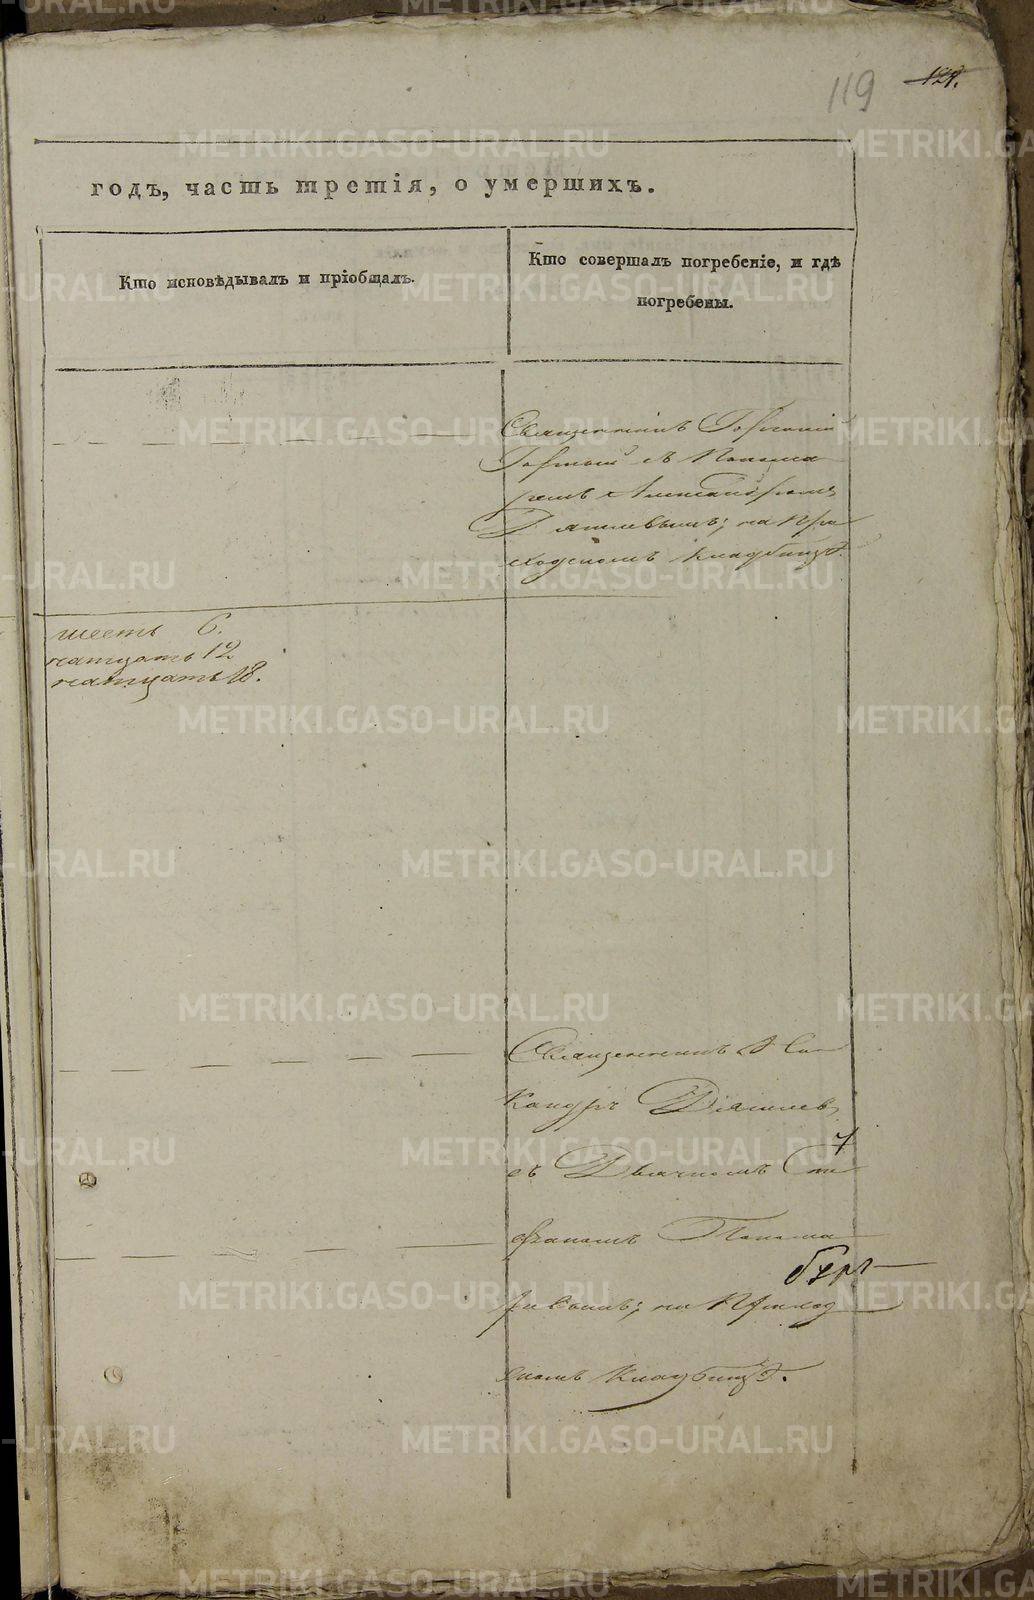 119
121.
годъ, часть третія, о умершихъ.
Кто исповѣдывалъ и пріобщалъ.
Кто совершалъ погребеніе, и гдѣ
погребены.
Священникъ
съ Понома
ремъ Александромъ
Дягилевымъ; на При
ходскомъ Кладбищѣ.
шесть 6.
натцать 12
натцать 18.
Священникъ Ни
кандръ Дягилевъ
съ Дьячкомъ Сте
фаномъ Понома
ревымъ; на Приход
скомъ Кладбищѣ.
METRIKI.GASO-URAL.RU